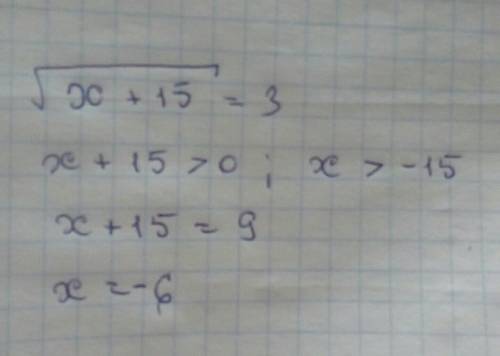 √x + 15 = 3
x + 15 > 0 ; x > -15
x + 15 = 9
x = -6